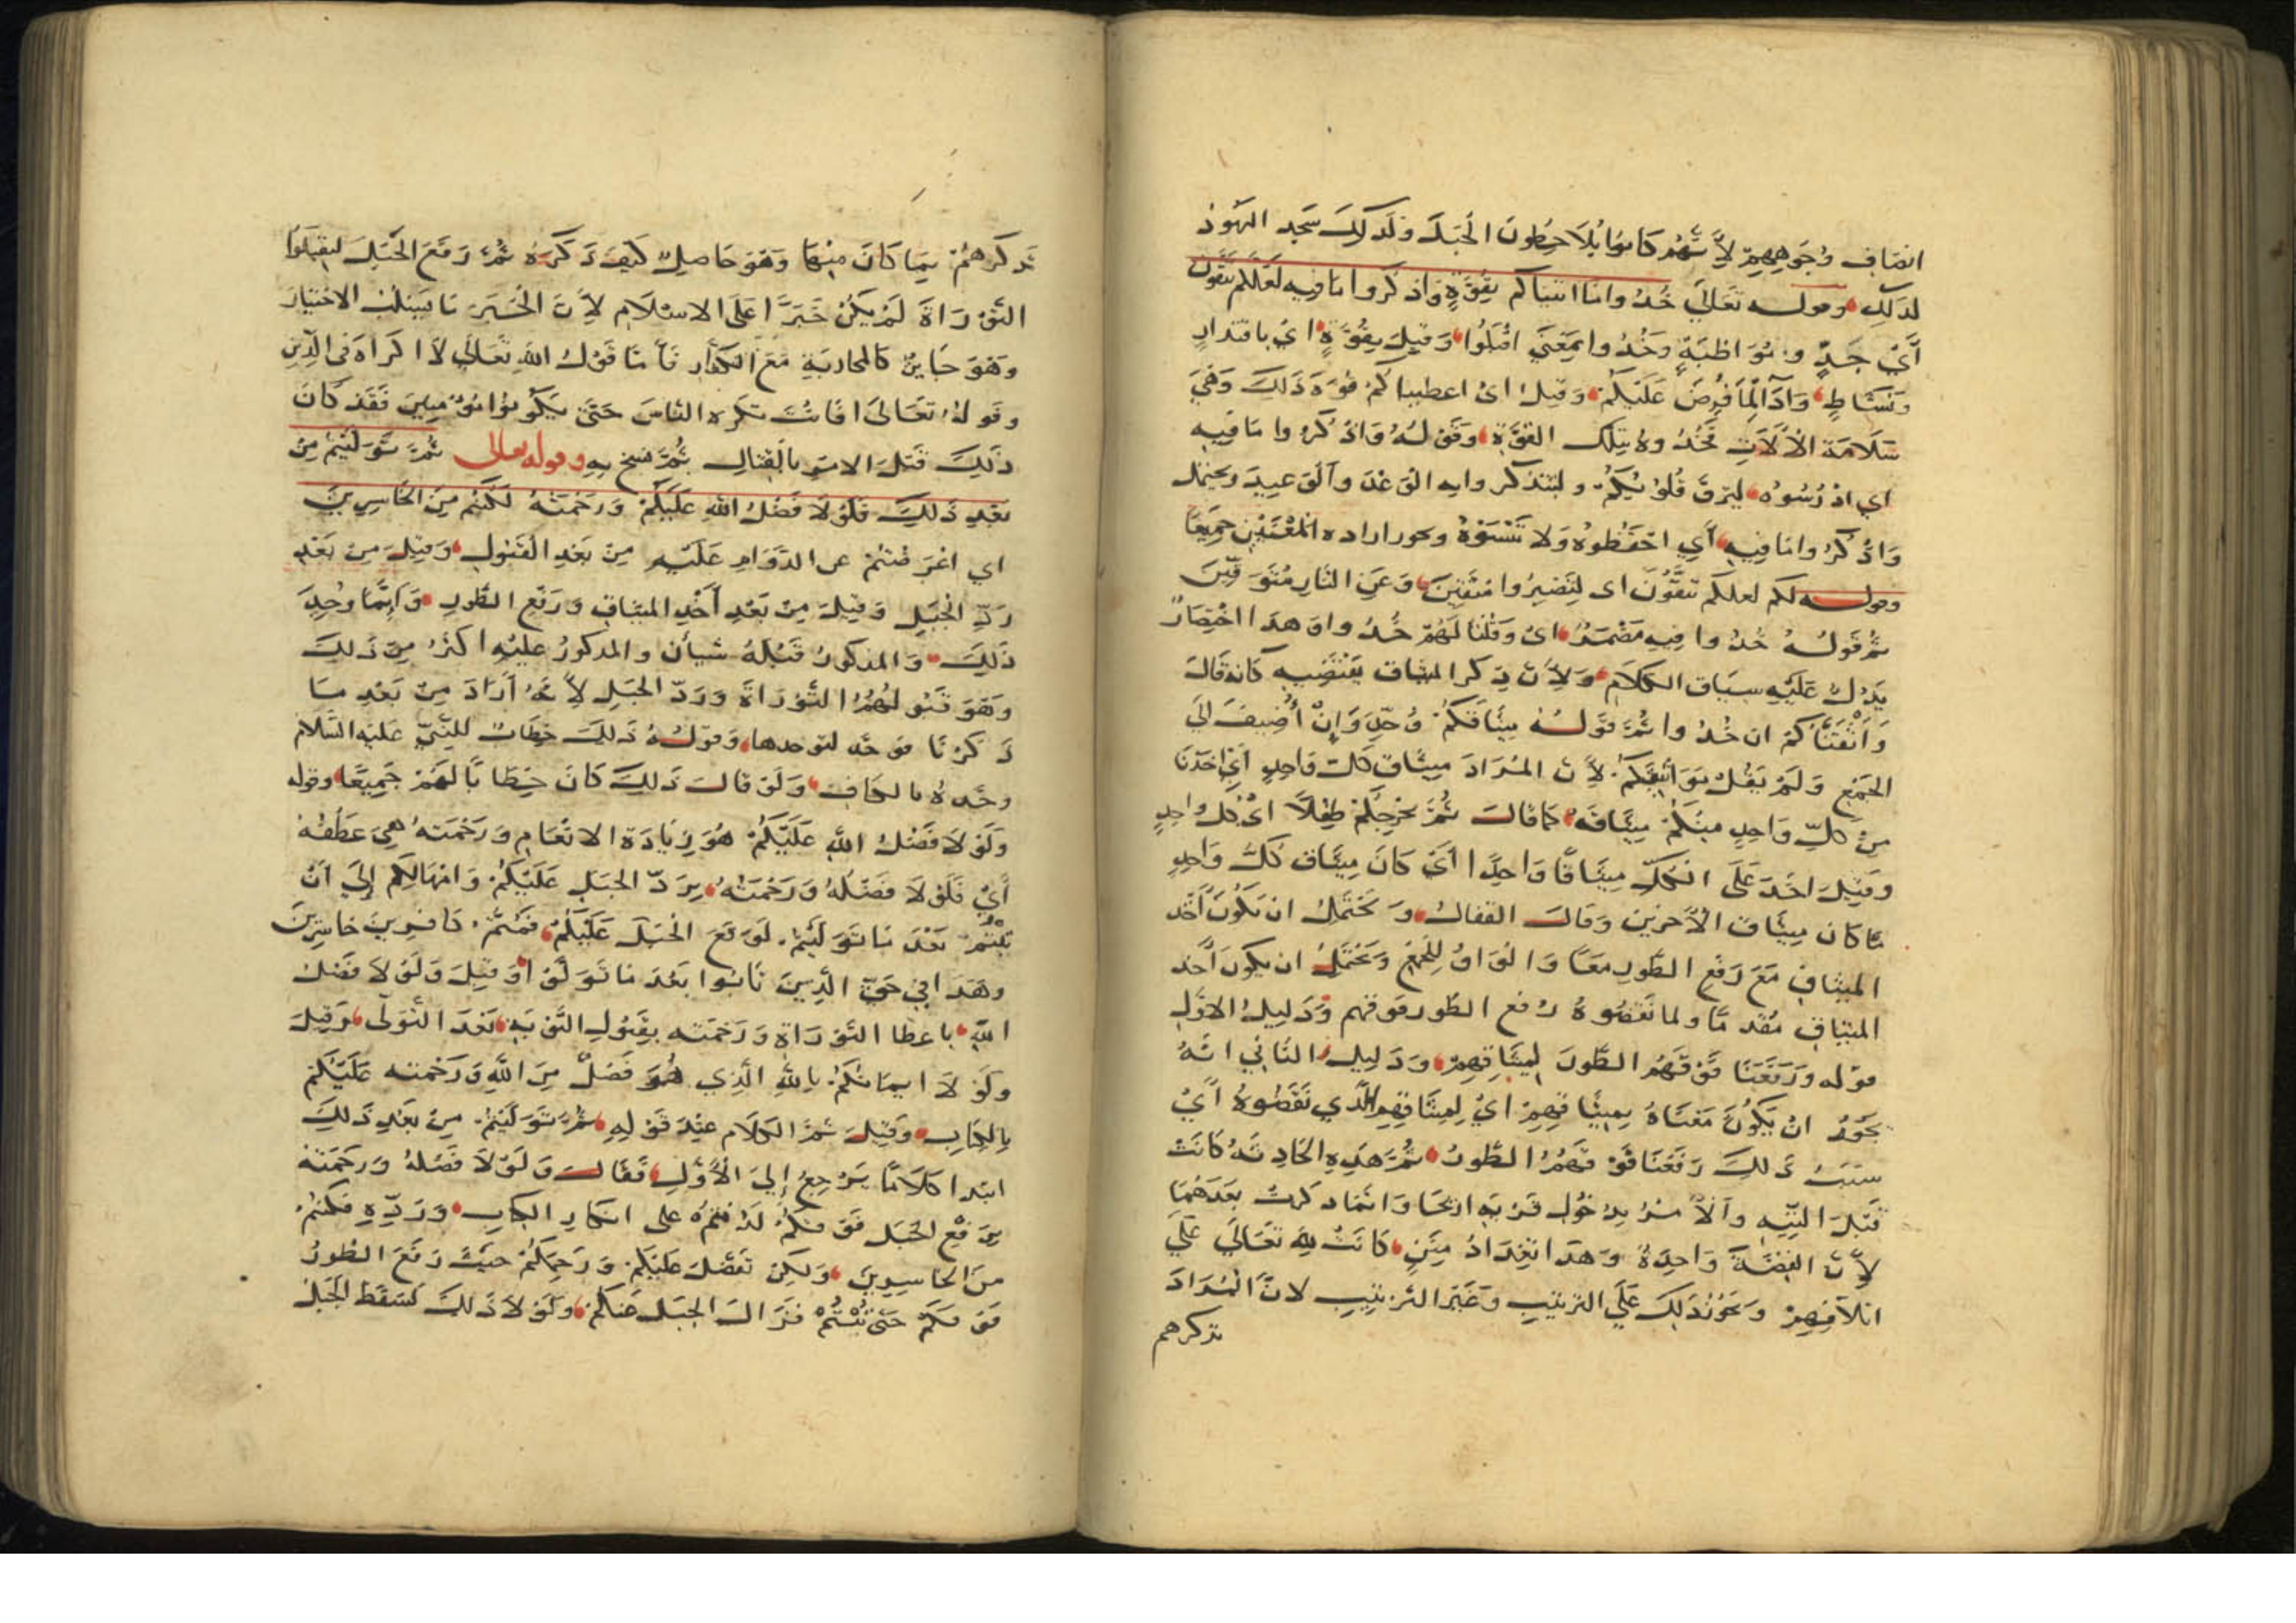 انصاف وجوههم لأنهم كانوا يلاحظون الجبل ولذلك سجد اليهود
لذلك وقوله تعالى خذوا ما اتيناكم بقوة واذكروا ما فيه لعلكم تتقون
أي جد ومواظبة وخذوا بمعنى اقبلوا وقيل بقوة اي باقتدار
ونشاط وادآء لما فرض عليكم وقيل اي اعطيناكم قوة ذلك وهي
سلامة الألات فخذوه بتلك القوة وقوله واذكروا ما فيه
اي ادرسوه ليرق قلوبكم ولتتذكروا به الوعد والوعيد ويحتمل
واذكروا ما فيه أي احفظوه ولا تنسوه ويجوز اراده المعنيين جميعا
وقوله لكم لعلكم تتقون اي لتصيروا متقين وعن النار متوقين
ثم قوله خذوا فيه مضمر اي وقلنا لهم خذوا وهذا اختصار
يدل عليه سياق الكلام ولأن ذكر الميثاق يقتضيه كانه قال
واثقناكم ان خذوا ثم قوله ميثاقكم وحد وإن أضيف الى
الجمع ولم يقل مواثيقكم لأن المراد ميثاق كل واحد أي اخذنا
من كل واحد منكم ميثاقه كما قال ثم نخرجكم طفلا اي كل واحد
وقيل اخذ على الكل ميثاقا واحدا أي كان ميثاق كل واحد
ما كان ميثاق الآخرين وقال القفال ويحتمل ان يكون أخذ
الميثاق مع رفع الطور معا والواو للجمع ويحتمل ان يكون أخذ
الميثاق مقدما ولما نقضوه رفع الطور فوقهم ودليل الاول
قوله ورفعنا فوقهم الطور لميثاقهم ودليل الثاني انه
يجوز ان يكون معناه بميثاقهم اي لميثاقهم الذي نقضوه أي
بسبب ذلك رفعنا فوقهم الطور ثم هذه الحادثة كانت
قبل التيه والأمر بدخول قرية اريحا وانما ذكرت بعدهما
لأن القصة واحدة وهذا تعداد منن كانت لله تعالى على
اسلافهم ويجوز ذلك على الترتيب وغير الترتيب لان المراد
تذكرهم
تذكرهم بما كان منها وهو حاصل كيف ذكره ثم رفع الجبل ليقبلوا
التوراة لم يكن خبرا على الاسلام لأن الخبر ما يسلب الاختيار
وهو جايز كالمحاربة مع الكفار فأما قول الله تعالى لا اكراه في الدين
وقوله تعالى افانت تكره الناس حتى يكونوا مؤمنين فقد كان
ذلك قبل الامر بالقتال ثم نسخ به وقوله تعالى ثم توليتم من
بعد ذلك فلولا فضل الله عليكم ورحمته لكنتم من الخاسرين
اي اعرضتم عن الدوام عليه من بعد القبول وقيل من بعد
رد الجبل وقيل من بعد أخذ الميثاق ورفع الطور وانما وحد
ذلك والمذكور قبله شيأن والمذكور عليه اكثر من ذلك
وهو قبولهم التوراة ورد الجبل لأنه أراد من بعد ما
ذكرنا فوحد لتوحدها وقوله ذلك خطاب للنبي عليه السلام
وحده بالكاف ولو قال ذلك كان خطابا لهم جميعا وقوله
ولولا فضل الله عليكم هو زيادة الانعام ورحمته هي عطفه
أي فلولا فضله ورحمته برد الجبل عليكم وامهالكم إلى ان
تبتم بعد ما توليتم لوقع الجبل عليكم فمتم كافرين خاسرين
وهذا في حق الذين تابوا بعد ما تولوا وقيل ولولا فضل
الله باعطا التوراة ورحمته بقبول التوبة بعد التولى وقيل
ولولا ايمانكم بالله الذي هو فضل من الله ورحمته عليكم
بالكتاب وقيل ثم الكلام عند قوله ثم توليتم من بعد ذلك
ابتدا كلاما يرجع إلى الأول فقال ولولا فضله ورحمته
برفع الجبل فوقكم لدمتم على انكار الكتاب ورده فكنتم
من الخاسرين ولكن تفضل عليكم ورحمكم حيث رفع الطور
فوقكم حتى تبتم فزال الجبل عنكم ولولا ذلك لسقط الجبل